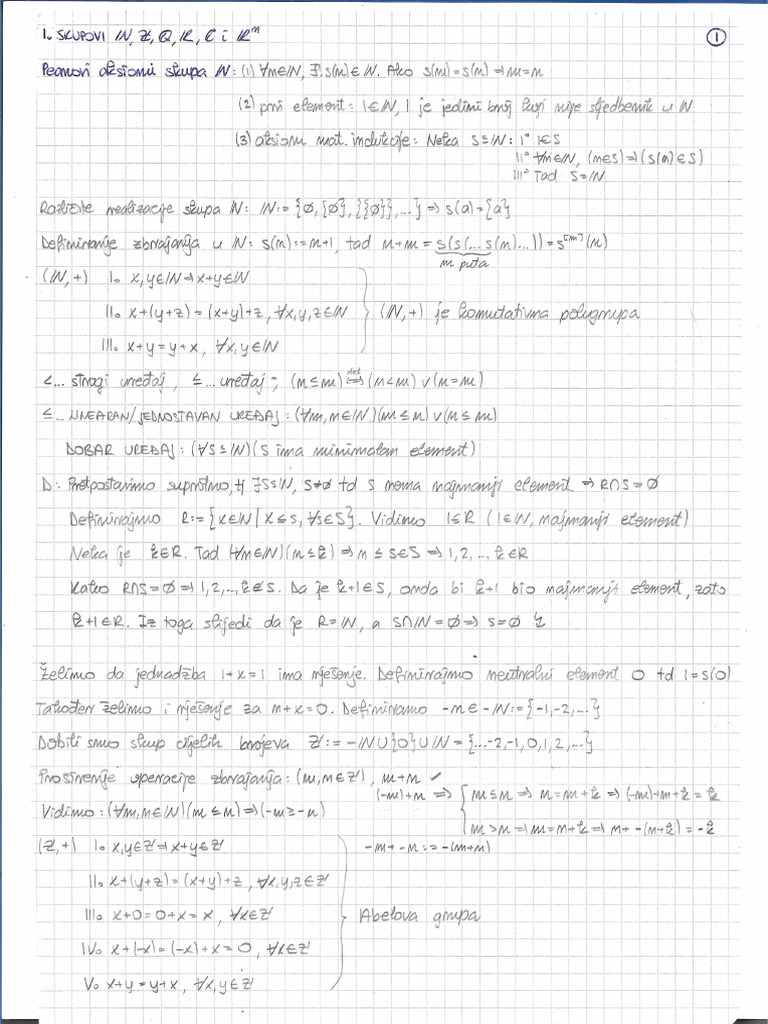 1. SKUPOVI ℕ, ℤ, ℚ, ℝ, ℂ i ℝⁿ
1
Peanovi aksiomi skupa ℕ: (1) ∀n∈ℕ, ∃! s(n)∈ℕ. Ako s(m)=s(n) ⇒ m=n
(2) prvi element: 1∈ℕ, 1 je jedini broj koji nije sljedbenik u ℕ
(3) aksiom mat. indukcije: Neka S⊆ℕ: I° 1∈S
II° ∀n∈ℕ, (n∈S)⇒(s(n)∈S)
III° Tad S=ℕ
Različite realizacije skupa ℕ: ℕ:={∅,{∅},{{∅}},...} ⇒ s(a)={a}
Definiranje zbrajanja u ℕ: s(n):=n+1, tad n+m = s(s(...s(n)...)) = s^[m](n)
m puta
(ℕ,+) I. x,y∈ℕ ⇒ x+y∈ℕ
II. x+(y+z)=(x+y)+z, ∀x,y,z∈ℕ (ℕ,+) je komutativna polugrupa
III. x+y=y+x, ∀x,y∈ℕ
<... strogi uređaj, ≤... uređaj -, (m≤n) def⇔ (m<n)∨(n=m)
≤... LINEARAN/JEDNOSTAVAN UREĐAJ: (∀m,n∈ℕ)(m≤n)∨(n≤m)
DOBAR UREĐAJ: (∀S⊆ℕ)(S ima minimalan element)
D: Pretpostavimo suprotno, tj ∃S⊆ℕ, S≠∅ td S nema najmanji element ⇒ R∩S=∅
Definirajmo R:={x∈ℕ | x≤s, ∀s∈S}. Vidimo 1∈R (1∈ℕ, najmanji element)
Neka je k∈R. Tad (∀n∈ℕ)(n≤k) ⇒ n≤s∈S ⇒ 1,2,..,k∈R
Kako R∩S=∅ ⇒ 1,2,..,k∉S. Da je k+1∈S, onda bi k+1 bio najmanji element, zato
k+1∈R. Iz toga slijedi da je R=ℕ, a S∩ℕ=∅ ⇒ S=∅ ↯
Želimo da jednadžba 1+x=1 ima rješenje. Definirajmo neutralni element 0 td 1=s(0)
Također želimo i rješenje za n+x=0. Definiramo -n∈-ℕ:={-1,-2,...}
Dobili smo skup cijelih brojeva ℤ:=-ℕ∪{0}∪ℕ={...-2,-1,0,1,2,...}
Proširenje operacije zbrajanja: (m,n∈ℤ), m+n ✓
(-m)+n ⇒ m≤n ⇒ n=m+k ⇒ (-m)+m+k=k
Vidimo: (∀m,n∈ℕ)(m≤n)⇒(-m≥-n)
m>n ⇒ m=n+k ⇒ n+-(n+k)=-k
(ℤ,+) I. x,y∈ℤ ⇒ x+y∈ℤ -m+-n:=-(m+n)
II. x+(y+z)=(x+y)+z, ∀x,y,z∈ℤ
III. x+0=0+x=x, ∀x∈ℤ Abelova grupa
IV. x+(-x)=(-x)+x=0, ∀x∈ℤ
V. x+y=y+x, ∀x,y∈ℤ